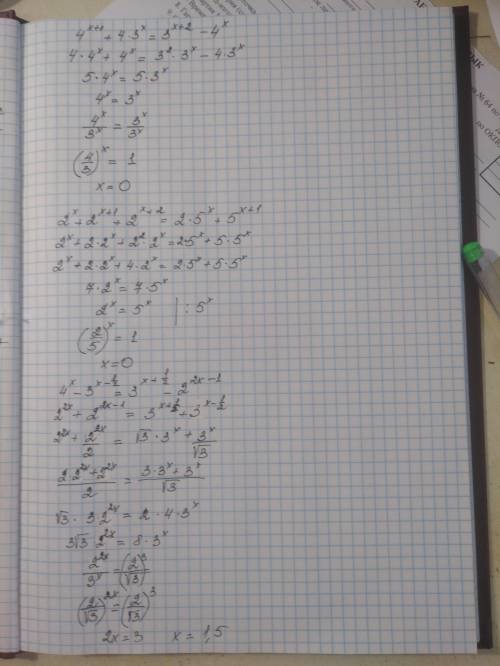 4^{x+1} + 4·3^x = 3^{x+2} - 4^x
4·4^x + 4^x = 3^2·3^x - 4·3^x
5·4^x = 5·3^x
4^x = 3^x
4^x/3^x = 3^x/3^x
(4/3)^x = 1
x = 0
2^x + 2^{x+1} + 2^{x+2} = 2·5^x + 5^{x+1}
2^x + 2·2^x + 2^2·2^x = 2·5^x + 5·5^x
2^x + 2·2^x + 4·2^x = 2·5^x + 5·5^x
7·2^x = 7·5^x
2^x = 5^x | : 5^x
(2/5)^x = 1
x = 0
4^x - 3^{x-1/2} = 3^{x+1/2} - 2^{2x-1}
2^{2x} + 2^{2x-1} = 3^{x+1/2} + 3^{x-1/2}
2^{2x} + 2^{2x}/2 = √3·3^x + 3^x/√3
(2·2^{2x} + 2^{2x})/2 = (3·3^x + 3^x)/√3
√3·3·2^{2x} = 2·4·3^x
3√3·2^{2x} = 8·3^x
2^{2x}/3^x = (2/√3)^3
(2/√3)^{2x} = (2/√3)^3
2x = 3 x = 1,5